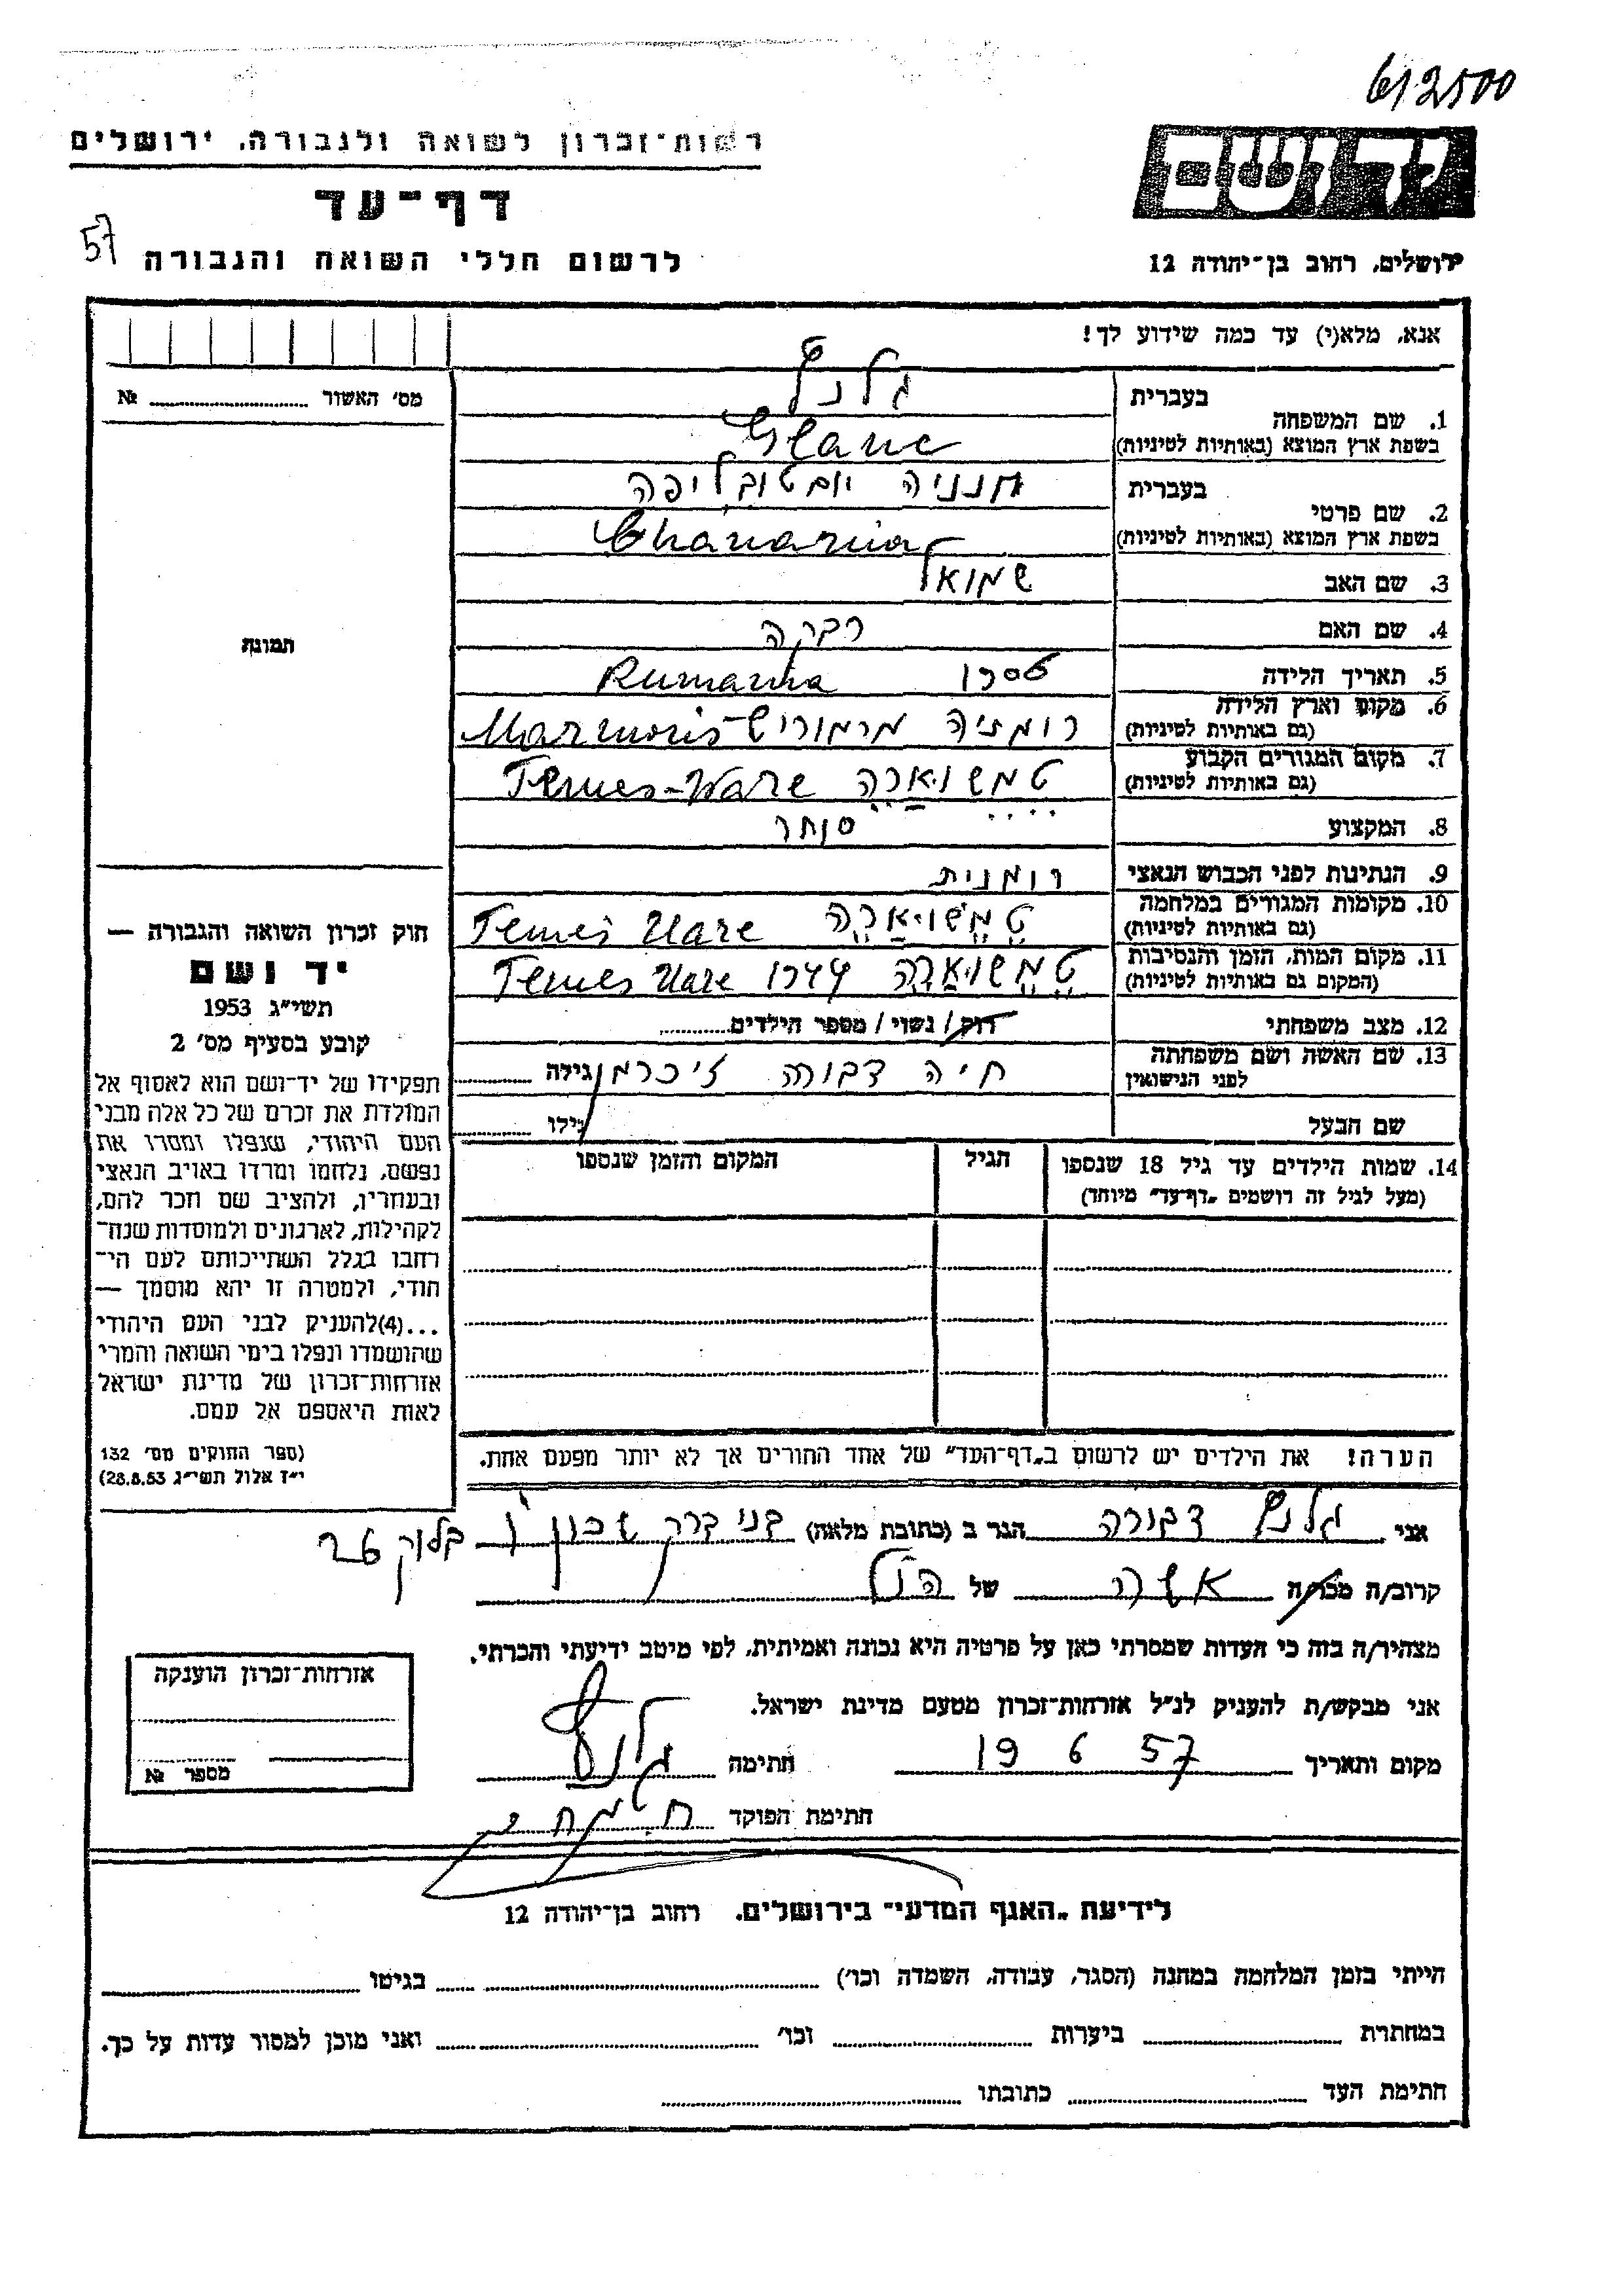 612500
רשות־זכרון לשואה ולגבורה, ירושלים
יד ושם
דף־עד
57
לרשום חללי השואה והגבורה
ירושלים, רחוב בן־יהודה 12
אנא, מלא(י) עד כמה שידוע לך!
מס' האשור № 
תמונה
1. שם המשפחה
בעברית
Glanc
בשפת ארץ המוצא (באותיות לטיניות)
2. שם פרטי
בעברית חנניה יום טוב ליפה
בשפת ארץ המוצא (באותיות לטיניות) Chanania
3. שם האב שמואל
4. שם האם רבקה
5. תאריך הלידה Rumania
6. מקום וארץ הלידה רומניה מרמוריש Marmoris
(גם באותיות לטיניות)
7. מקום המגורים הקבוע טמשוארה Temes-Ware
(גם באותיות לטיניות)
8. המקצוע סוחר
9. הנתינות לפני הכבוש הנאצי רומנית
10. מקומות המגורים במלחמה טמשוארה Temes Uare
(גם באותיות לטיניות)
11. מקום המות, הזמן והנסיבות טמשוארה 1944 Temes Uare
(המקום גם באותיות לטיניות)
12. מצב משפחתי רוק/ נשוי/ מספר הילדים
13. שם האשה ושם משפחתה חיה דבורה זיכרמן גילה
לפני הנישואין
שם הבעל גילו
14. שמות הילדים עד גיל 18 שנספו הגיל המקום והזמן שנספו
(מעל לגיל זה רושמים „דף־עד" מיוחד)
הערה! את הילדים יש לרשום ב„דף־העד" של אחד ההורים אך לא יותר מפעם אחת.
חוק זכרון השואה והגבורה —
יד ושם
תשי״ג 1953
קובע בסעיף מס' 2
תפקידו של יד־ושם הוא לאסוף אל
המולדת את זכרם של כל אלה מבני
העם היהודי, שנפלו ומסרו את
נפשם, נלחמו ומרדו באויב הנאצי
ובעוזריו, ולהציב שם וזכר להם,
לקהילות, לארגונים ולמוסדות שנח־
רבו בגלל השתייכותם לעם הי־
הודי, ולמטרה זו יהא מוסמך —
...(4)להעניק לבני העם היהודי
שהושמדו ונפלו בימי השואה והמרי
אזרחות־זכרון של מדינת ישראל
לאות היאספם אל עמם.
(ספר החוקים מס' 132
י״ז אלול תשי״ג 28.8.53)
אני גלנץ דבורה הגר ב (כתובת מלאה) בני ברק שכון ו' בלוק
קרוב/ה מכר/ה אשה של הנ״ל
מצהיר/ה בזה כי העדות שמסרתי כאן על פרטיה היא נכונה ואמיתית, לפי מיטב ידיעתי והכרתי.
אני מבקש/ת להעניק לנ״ל אזרחות־זכרון מטעם מדינת ישראל.
מקום ותאריך 19 6 57 חתימה
חתימת הפוקד
אזרחות־זכרון הוענקה
מספר №
לידיעת „האגף המדעי" בירושלים, רחוב בן־יהודה 12
הייתי בזמן המלחמה במחנה (הסגר, עבודה, השמדה וכו') בגיטו
במחתרת ביערות וכו' ואני מוכן למסור עדות על כך.
חתימת העד כתובתו